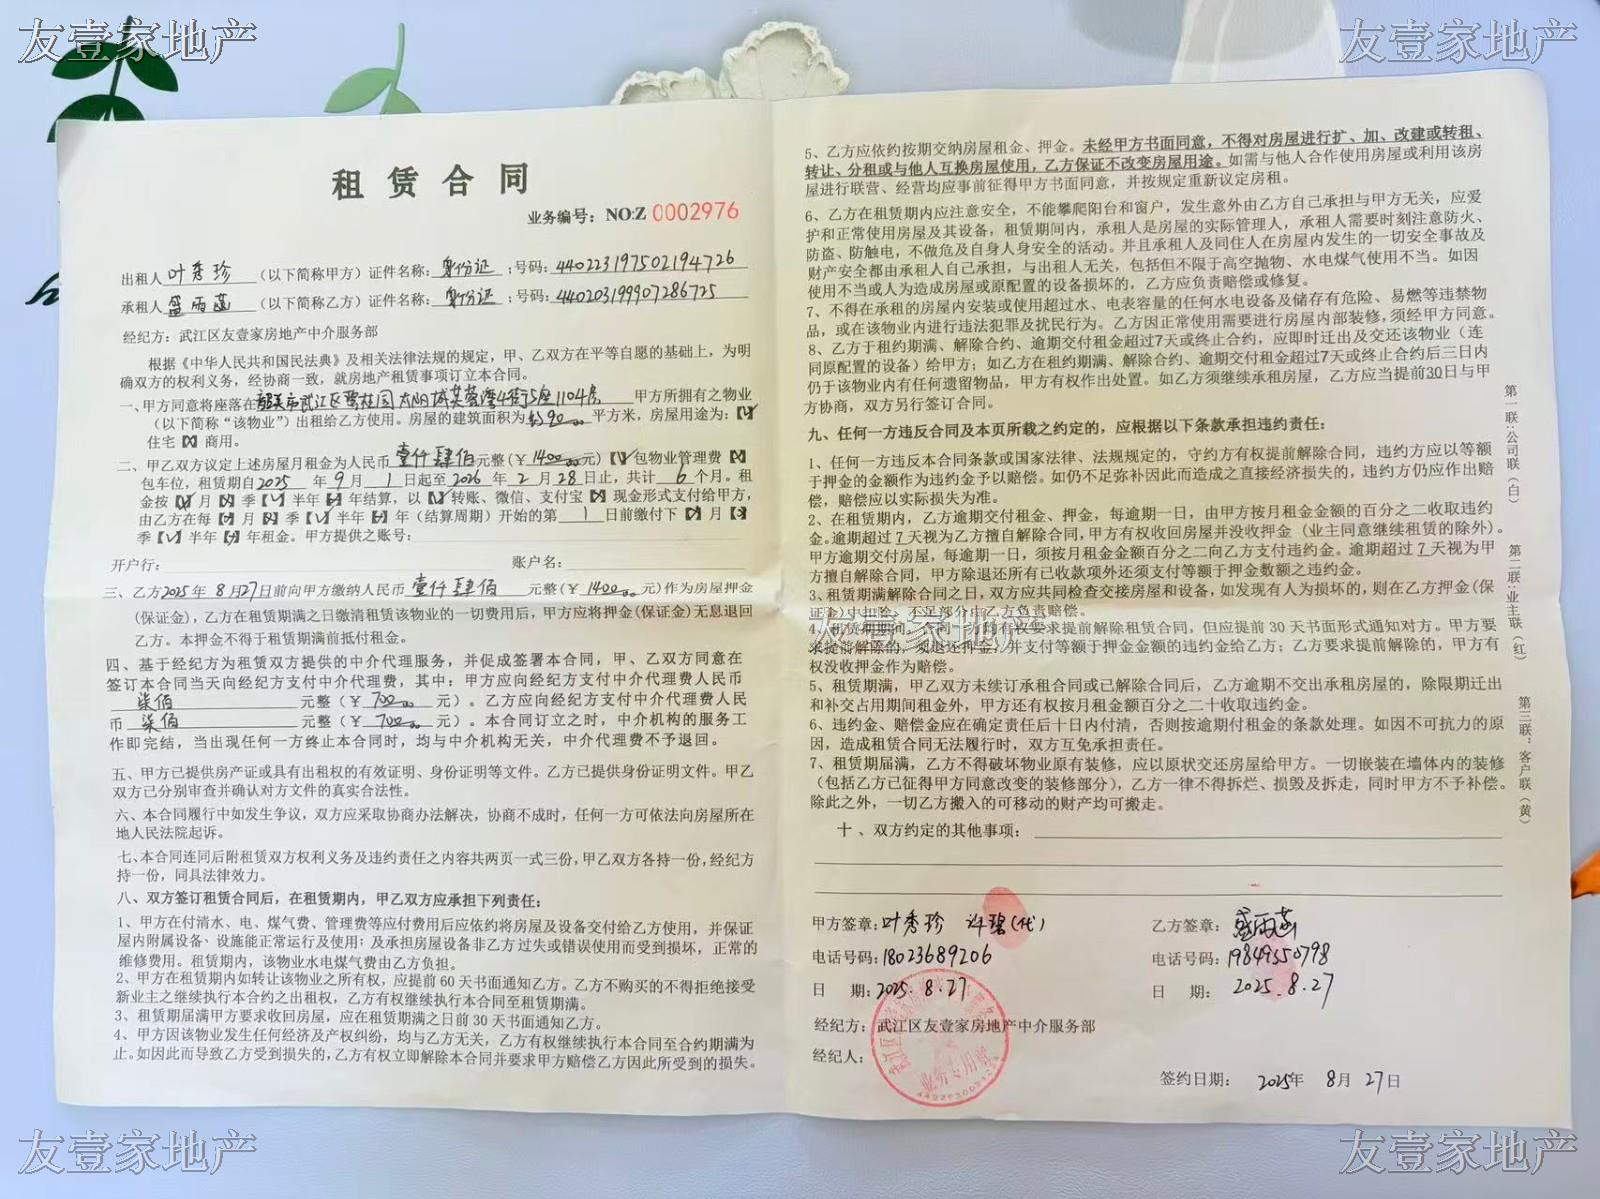 友壹家地产
友壹家地产
租赁合同
业务编号：NO:Z 0002976
出租人 叶秀珍 （以下简称甲方）证件名称：身份证 ；号码：440223197502194726
承租人 盛雨菡 （以下简称乙方）证件名称：身份证 ；号码：440203199907286725
经纪方：武江区友壹家房地产中介服务部
根据《中华人民共和国民法典》及相关法律法规的规定，甲、乙双方在平等自愿的基础上，为明
确双方的权利义务，经协商一致，就房地产租赁事项订立本合同。
一、甲方同意将座落在韶关市武江区碧桂园太阳城芙蓉湾4街5座1104房 甲方所拥有之物业
（以下简称“该物业”）出租给乙方使用。房屋的建筑面积为 约90 平方米，房屋用途为：【√】
住宅【×】商用。
二、甲乙双方议定上述房屋月租金为人民币 壹仟肆佰 元整(￥ 1400.00 元)【√】包物业管理费【×】
包车位，租赁期自2025 年 9 月 1 日起至 2026 年 2 月 28 日止，共计 6 个月。租
金按【 】月【 】季【√】半年【 】年结算，以【√】转账、微信、支付宝【×】现金形式支付给甲方，
由乙方在每【 】月【 】季【√】半年【 】年（结算周期）开始的第 1 日前缴付下【 】月【 】
季【√】半年【 】年租金。甲方提供之账号：
开户行： 账户名：
三、乙方2025年 8月27日前向甲方缴纳人民币 壹仟肆佰 元整(￥ 1400.00 元)作为房屋押金
(保证金)，乙方在租赁期满之日缴清租赁该物业的一切费用后，甲方应将押金(保证金)无息退回
乙方。本押金不得于租赁期满前抵付租金。
四、基于经纪方为租赁双方提供的中介代理服务，并促成签署本合同，甲、乙双方同意在
签订本合同当天向经纪方支付中介代理费，其中：甲方应向经纪方支付中介代理费人民币
柒佰 元整（￥ 700.00 元）。乙方应向经纪方支付中介代理费人民
币 柒佰 元整（￥ 700.00 元）。本合同订立之时，中介机构的服务工
作即完结，当出现任何一方终止本合同时，均与中介机构无关，中介代理费不予退回。
五、甲方已提供房产证或具有出租权的有效证明、身份证明等文件。乙方已提供身份证明文件。甲乙
双方已分别审查并确认对方文件的真实合法性。
六、本合同履行中如发生争议，双方应采取协商办法解决，协商不成时，任何一方可依法向房屋所在
地人民法院起诉。
七、本合同连同后附租赁双方权利义务及违约责任之内容共两页一式三份，甲乙双方各持一份，经纪方
持一份，同具法律效力。
八、双方签订租赁合同后，在租赁期内，甲乙双方应承担下列责任：
1、甲方在付清水、电、煤气费、管理费等应付费用后应依约将房屋及设备交付给乙方使用，并保证
屋内附属设备、设施能正常运行及使用；及承担房屋设备非乙方过失或错误使用而受到损坏，正常的
维修费用。租赁期内，该物业水电煤气费由乙方负担。
2、甲方在租赁期内如转让该物业之所有权，应提前60天书面通知乙方。乙方不购买的不得拒绝接受
新业主之继续执行本合约之出租权，乙方有权继续执行本合同至租赁期满。
3、租赁期届满甲方要求收回房屋，应在租赁期满之日前30天书面通知乙方。
4、甲方因该物业发生任何经济及产权纠纷，均与乙方无关，乙方有权继续执行本合同至合约期满为
止。如因此而导致乙方受到损失的，乙方有权立即解除本合同并要求甲方赔偿乙方因此所受到的损失。
5、乙方应依约按期交纳房屋租金、押金。未经甲方书面同意，不得对房屋进行扩、加、改建或转租、
转让、分租或与他人互换房屋使用，乙方保证不改变房屋用途。如需与他人合作使用房屋或利用该房
屋进行联营、经营均应事前征得甲方书面同意，并按规定重新议定房租。
6、乙方在租赁期内应注意安全，不能攀爬阳台和窗户，发生意外由乙方自己承担与甲方无关，应爱
护和正常使用房屋及其设备，租赁期间内，承租人是房屋的实际管理人，承租人需要时刻注意防火、
防盗、防触电，不做危及自身人身安全的活动。并且承租人及同住人在房屋内发生的一切安全事故及
财产安全都由承租人自己承担，与出租人无关，包括但不限于高空抛物、水电煤气使用不当。如因
使用不当或人为造成房屋或原配置的设备损坏的，乙方应负责赔偿或修复。
7、不得在承租的房屋内安装或使用超过水、电表容量的任何水电设备及储存有危险、易燃等违禁物
品，或在该物业内进行违法犯罪及扰民行为。乙方因正常使用需要进行房屋内部装修，须经甲方同意。
8、乙方于租约期满、解除合约、逾期交付租金超过7天或终止合约，应即时迁出及交还该物业（连
同原配置的设备）给甲方；如乙方在租约期满、解除合约、逾期交付租金超过7天或终止合约后三日内
仍于该物业内有任何遗留物品，甲方有权作出处置。如乙方须继续承租房屋，乙方应当提前30日与甲
方协商，双方另行签订合同。
九、任何一方违反合同及本页所载之约定的，应根据以下条款承担违约责任：
1、任何一方违反本合同条款或国家法律、法规规定的，守约方有权提前解除合同，违约方应以等额
于押金的金额作为违约金予以赔偿。如仍不足弥补因此而造成之直接经济损失的，违约方仍应作出赔
偿，赔偿应以实际损失为准。
2、在租赁期内，乙方逾期交付租金、押金，每逾期一日，由甲方按月租金金额的百分之二收取违约
金。逾期超过7天视为乙方擅自解除合同，甲方有权收回房屋并没收押金（业主同意继续租赁的除外）。
甲方逾期交付房屋，每逾期一日，须按月租金金额百分之二向乙方支付违约金。逾期超过7天视为甲
方擅自解除合同，甲方除退还所有已收款项外还须支付等额于押金数额之违约金。
3、租赁期满解除合同之日，双方应共同检查交接房屋和设备，如发现有人为损坏的，则在乙方押金(保
证金)中扣除，不足部分由乙方负责赔偿。
4、租赁期期间，任何一方均有权要求提前解除租赁合同，但应提前30天书面形式通知对方。甲方要
求提前解除的，须退还押金，并支付等额于押金金额的违约金给乙方；乙方要求提前解除的，甲方有
权没收押金作为赔偿。
友壹家地产
5、租赁期满，甲乙双方未续订承租合同或已解除合同后，乙方逾期不交出承租房屋的，除限期迁出
和补交占用期间租金外，甲方还有权按月租金额百分之二十收取违约金。
6、违约金、赔偿金应在确定责任后十日内付清，否则按逾期付租金的条款处理。如因不可抗力的原
因，造成租赁合同无法履行时，双方互免承担责任。
7、租赁期届满，乙方不得破坏物业原有装修，应以原状交还房屋给甲方。一切嵌装在墙体内的装修
（包括乙方已征得甲方同意改变的装修部分），乙方一律不得拆烂、损毁及拆走，同时甲方不予补偿。
除此之外，一切乙方搬入的可移动的财产均可搬走。
十、双方约定的其他事项：
甲方签章：叶秀珍 许碧(代)
乙方签章：盛雨菡
电话号码：18023689206
电话号码：19849550798
日 期：2025.8.27
日 期：2025.8.27
经纪方：武江区友壹家房地产中介服务部
经纪人：
业务专用章
签约日期：2025年 8月 27日
第一联：公司联（白）
第二联：业主联（红）
第三联：客户联（黄）
友壹家地产
友壹家地产